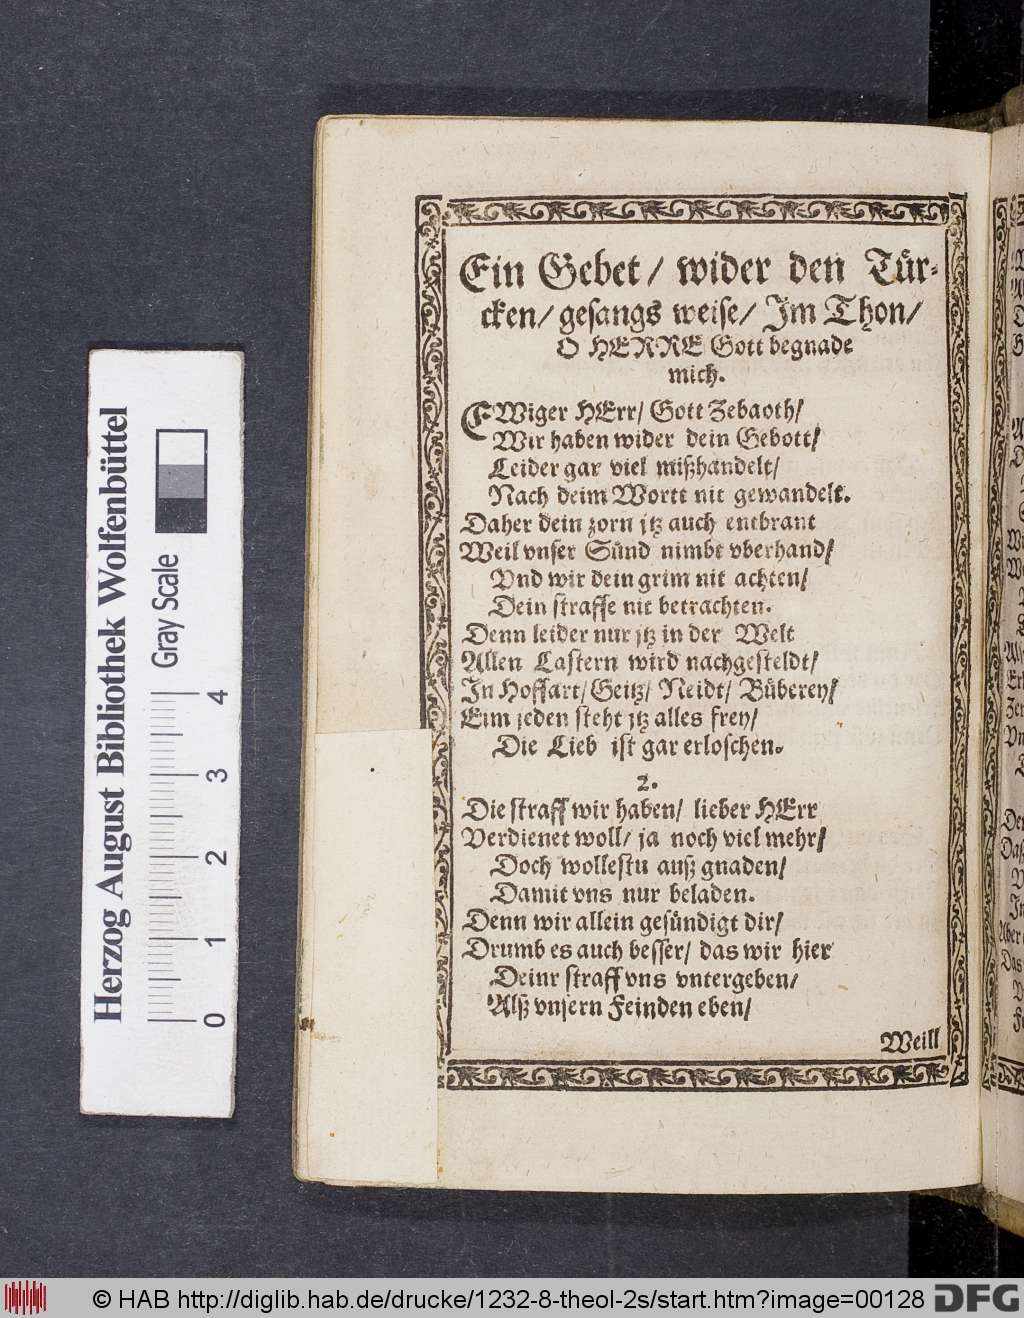 Ein Gebet / wider den Tür-
cken / gesangs weise / Im Thon /
O HERRE Gott begnade
mich.
EWiger HErr / Gott Zebaoth /
Wir haben wider dein Gebott /
Leider gar viel mißhandelt /
Nach deim Wortt nit gewandelt.
Daher dein zorn jtz auch entbrant
Weil vnser Sünd nimbt vberhand /
Vnd wir dein grim nit achten /
Dein straffe nit betrachten.
Denn leider nur jtz in der Welt
Allen Lastern wird nachgesteldt /
In Hoffart / Geitz / Neidt / Büberey /
Eim jeden steht jtz alles frey /
Die Lieb ist gar erloschen.
2.
Die straff wir haben / lieber HErr
Verdienet woll / ja noch viel mehr /
Doch wollestu auß gnaden /
Damit vns nur beladen.
Denn wir allein gesündigt dir /
Drumb es auch besser / das wir hier
Deinr straff vns vntergeben /
Alß vnsern Feinden eben /
Weill
Herzog August Bibliothek Wolfenbüttel
Gray Scale
0 1 2 3 4
© HAB http://diglib.hab.de/drucke/1232-8-theol-2s/start.htm?image=00128
DFG